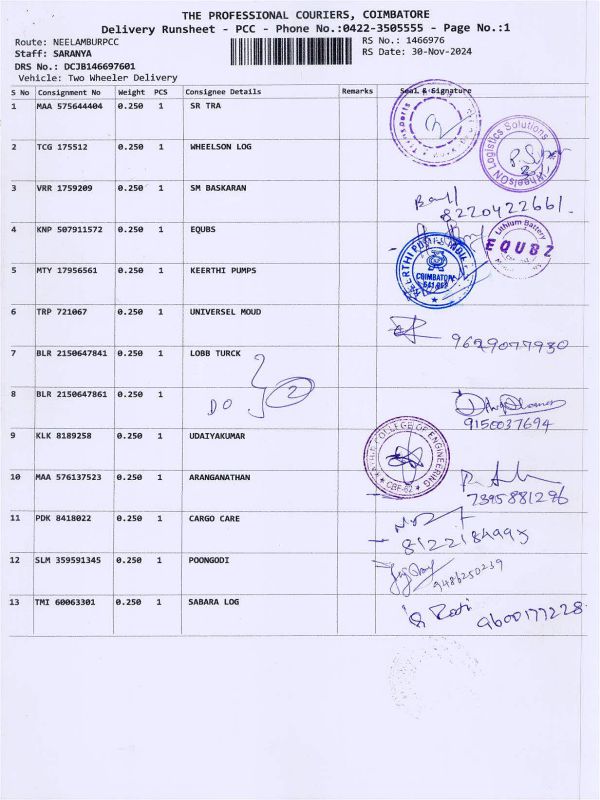 THE PROFESSIONAL COURIERS, COIMBATORE
Delivery Runsheet - PCC - Phone No.:0422-3505555 - Page No.:1
Route: NEELAMBURPCC
RS No.: 1466976
Staff: SARANYA
RS Date: 30-Nov-2024
DRS No.: DCJB146697601
Vehicle: Two Wheeler Delivery
S No Consignment No Weight PCS Consignee Details Remarks Seal & Signature
1 MAA 575644404 0.250 1 SR TRA
Transports
2 TCG 175512 0.250 1 WHEELSON LOG
WheelSON Logistics Solutions
3 VRR 1759209 0.250 1 SM BASKARAN
8220422661.
4 KNP 507911572 0.250 1 EQUBS
Lithium Battery
EQUBZ
5 MTY 17956561 0.250 1 KEERTHI PUMPS
KEERTHI PUMPS INDIA
COIMBATORE
6 TRP 721067 0.250 1 UNIVERSEL MOUD
9629077930
7 BLR 2150647841 0.250 1 LOBB TURCK
DO 2
8 BLR 2150647861 0.250 1
9150037694
9 KLK 8189258 0.250 1 UDAIYAKUMAR
COLLEGE OF ENGINEERING
CBE-62
10 MAA 576137523 0.250 1 ARANGANATHAN
7395881296
11 PDK 8418022 0.250 1 CARGO CARE
12 SLM 359591345 0.250 1 POONGODI
9486250239
13 TMI 60063301 0.250 1 SABARA LOG
9600177228